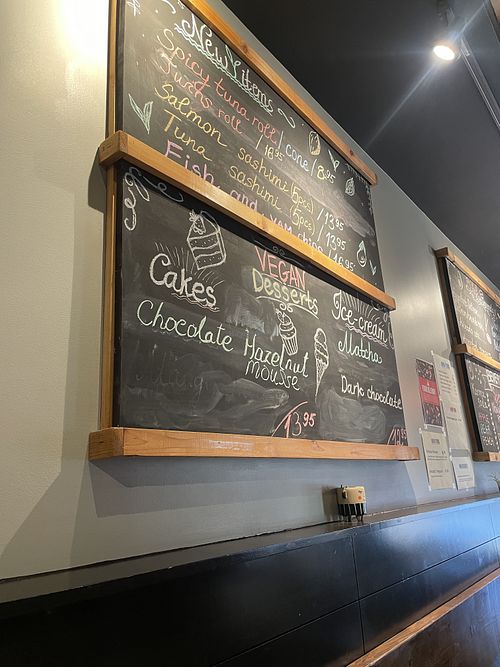 New items
Spicy tuna roll / cone / 8.95
roll / 16.95
Salmon sashimi (5pcs) / 13.95
Tuna sashimi (5pcs) / 13.95
Fish and yam chips / 16.95
VEGAN
Desserts
Cakes
Ice-cream
Chocolate Hazelnut
mousse
Matcha
Dark chocolate
13.95